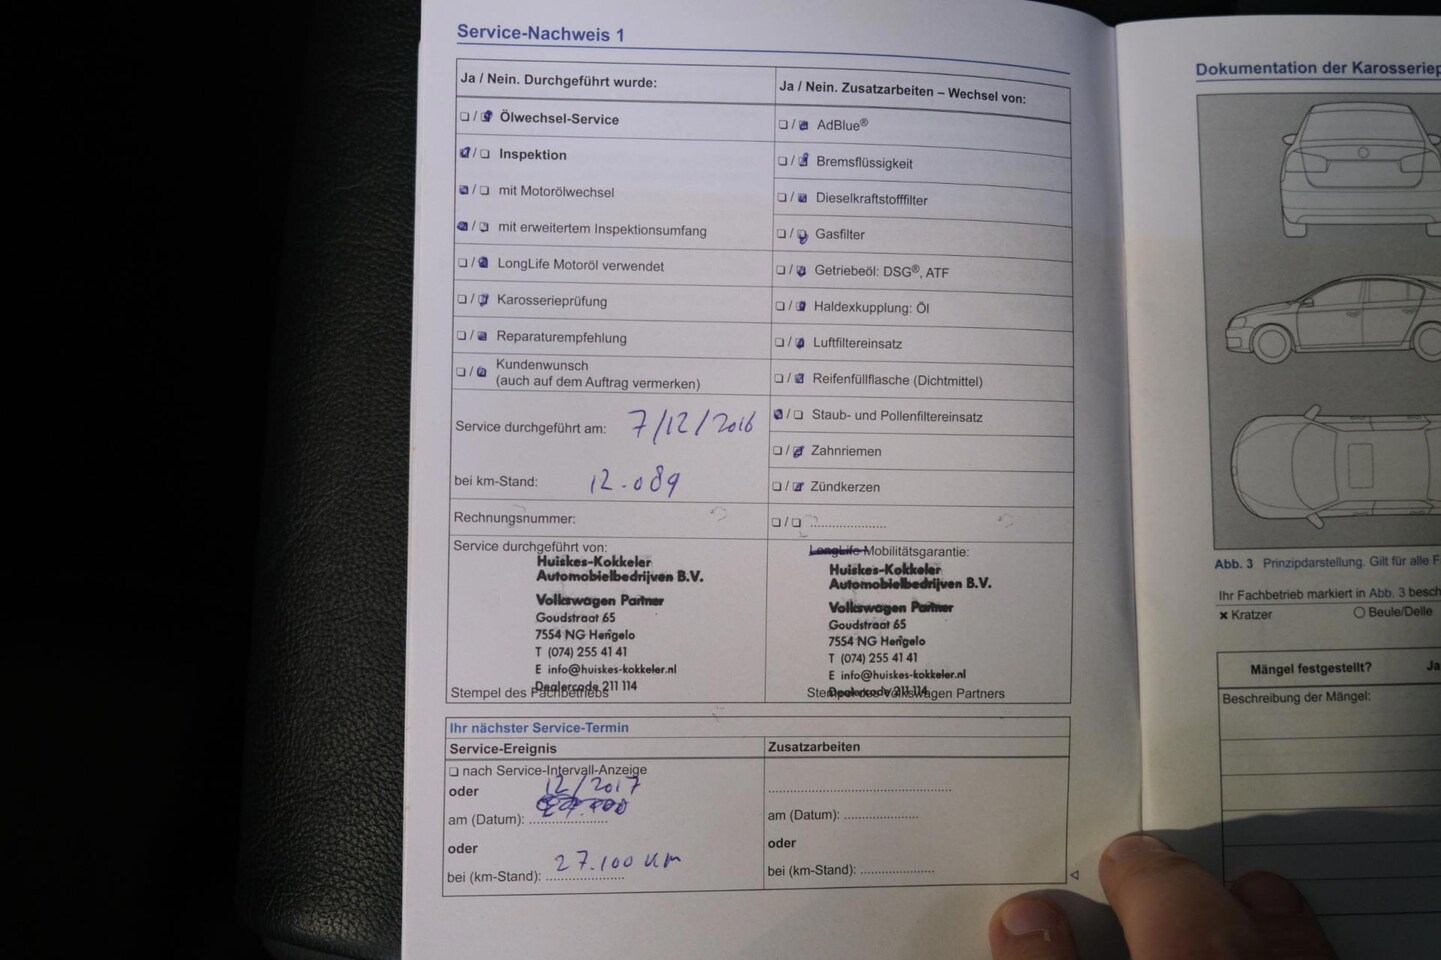 Service-Nachweis 1
Ja / Nein. Durchgeführt wurde:
❏ / ❏ Ölwechsel-Service
❏ / ❏ Inspektion
❏ / ❏ mit Motorölwechsel
❏ / ❏ mit erweitertem Inspektionsumfang
❏ / ❏ LongLife Motoröl verwendet
❏ / ❏ Karosserieprüfung
❏ / ❏ Reparaturempfehlung
❏ / ❏ Kundenwunsch
(auch auf dem Auftrag vermerken)
Service durchgeführt am: 7/12/2016
bei km-Stand: 12.089
Rechnungsnummer:
Service durchgeführt von:
Huiskes-Kokkeler
Automobielbedrijven B.V.
Volkswagen Partner
Goudstraat 65
7554 NG Hengelo
T (074) 255 41 41
E info@huiskes-kokkeler.nl
Dealercode 211 114
Stempel des Fachbetriebs
Ja / Nein. Zusatzarbeiten – Wechsel von:
❏ / ❏ AdBlue®
❏ / ❏ Bremsflüssigkeit
❏ / ❏ Dieselkraftstofffilter
❏ / ❏ Gasfilter
❏ / ❏ Getriebeöl: DSG®, ATF
❏ / ❏ Haldexkupplung: Öl
❏ / ❏ Luftfiltereinsatz
❏ / ❏ Reifenfüllflasche (Dichtmittel)
❏ / ❏ Staub- und Pollenfiltereinsatz
❏ / ❏ Zahnriemen
❏ / ❏ Zündkerzen
❏ / ❏ ....................
LongLife Mobilitätsgarantie:
Huiskes-Kokkeler
Automobielbedrijven B.V.
Volkswagen Partner
Goudstraat 65
7554 NG Hengelo
T (074) 255 41 41
E info@huiskes-kokkeler.nl
Dealercode 211 114
Stempel des Volkswagen Partners
Ihr nächster Service-Termin
Service-Ereignis
❏ nach Service-Intervall-Anzeige
oder
12/2017
am (Datum): ....................
oder
27.100 km
bei (km-Stand): ....................
Zusatzarbeiten
....................
am (Datum): ....................
oder
bei (km-Stand): ....................
Dokumentation der
Abb. 3 Prinzipdarstellung. Gilt für alle
Ihr Fachbetrieb markiert in Abb. 3
× Kratzer
○ Beule/Delle
Mängel festgestellt? Ja
Beschreibung der Mängel: